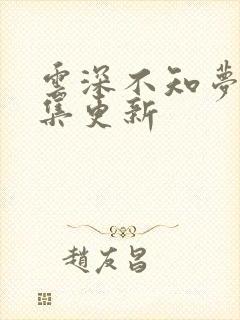 雲深不知夢
集更新
趙友昌